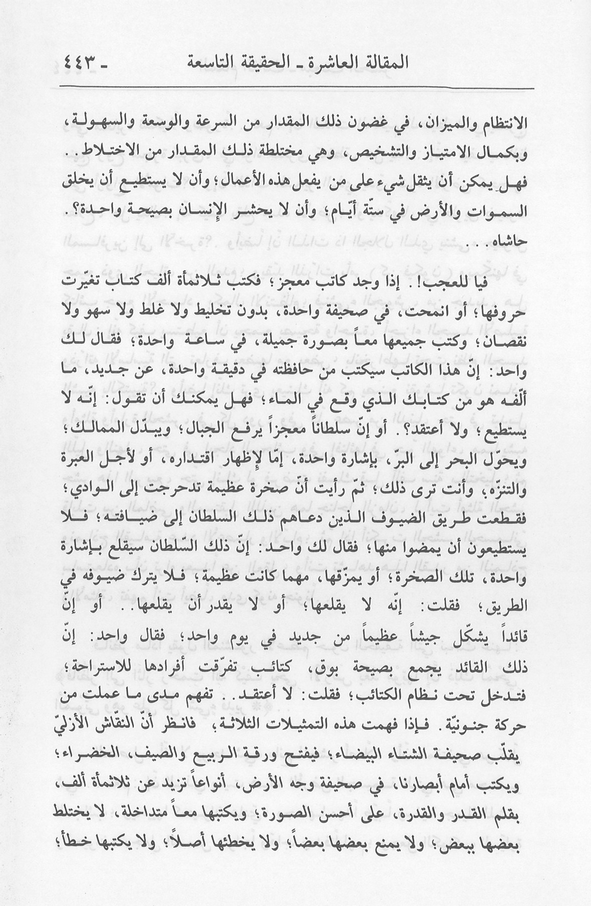 المقالة العاشرة ـ الحقيقة التاسعة ـ ٤٤٣
الانتظام والميزان، في غضون ذلك المقدار من السرعة والوسعة والسهولة،
وبكمال الامتياز والتشخيص، وهي مختلطة ذلك المقدار من الاختلاط. .
فهل يمكن أن يثقل شيء على من يفعل هذه الأعمال؛ وأن لا يستطيع أن يخلق
السموات والأرض في ستّة أيّام؛ وأن لا يحشر الإنسان بصيحة واحدة؟.
حاشاه. . .
فيا للعجب!. إذا وجد كاتب معجز؛ فكتب ثلاثمأة ألف كتاب تغيّرت
حروفها؛ أو انمحت، في صحيفة واحدة، بدون تخليط ولا غلط ولا سهو ولا
نقصان؛ وكتب جميعها معاً بصورة جميلة، في ساعة واحدة؛ فقال لك
واحد: إنّ هذا الكاتب سيكتب من حافظته في دقيقة واحدة، عن جديد، ما
ألّفه هو من كتابك الذي وقع في الماء؛ فهل يمكنك أن تقول: إنّه لا
يستطيع؛ ولا أعتقد؟. أو إنّ سلطاناً معجزاً يرفع الجبال؛ ويبدّل الممالك؛
ويحوّل البحر إلى البرّ، بإشارة واحدة، إمّا لإظهار اقتداره، أو لأجل العبرة
والتنزّه، وأنت ترى ذلك؛ ثمّ رأيت أنّ صخرة عظيمة تدحرجت إلى الوادي؛
فقطعت طريق الضيوف الذين دعاهم ذلك السلطان إلى ضيافته؛ فلا
يستطيعون أن يمضوا منها؛ فقال لك واحد: إنّ ذلك السّلطان سيقلع بإشارة
واحدة، تلك الصخرة؛ أو يمزّقها، مهما كانت عظيمة؛ فلا يترك ضيوفه في
الطريق؛ فقلت: إنّه لا يقلعها؛ أو لا يقدر أن يقلعها. . أو إنّ
قائداً يشكّل جيشاً عظيماً من جديد في يوم واحد؛ فقال واحد: إنّ
ذلك القائد يجمع بصيحة بوق، كتائب تفرّقت أفرادها للاستراحة؛
فتدخل تحت نظام الكتائب؛ فقلت: لا أعتقد. . تفهم مدى ما عملت من
حركة جنونيّة. فإذا فهمت هذه التمثيلات الثلاثة؛ فانظر أنّ النقّاش الأزليّ
يقلّب صحيفة الشتاء البيضاء؛ فيفتح ورقة الربيع والصيف، الخضراء؛
ويكتب أمام أبصارنا، في صحيفة وجه الأرض، أنواعاً تزيد عن ثلاثمأة ألف،
بقلم القدر والقدرة، على أحسن الصورة؛ ويكتبها معاً متداخلة، لا يختلط
بعضها ببعض؛ ولا يمنع بعضها بعضاً؛ ولا يخطئها أصلاً؛ ولا يكتبها خطأ؛